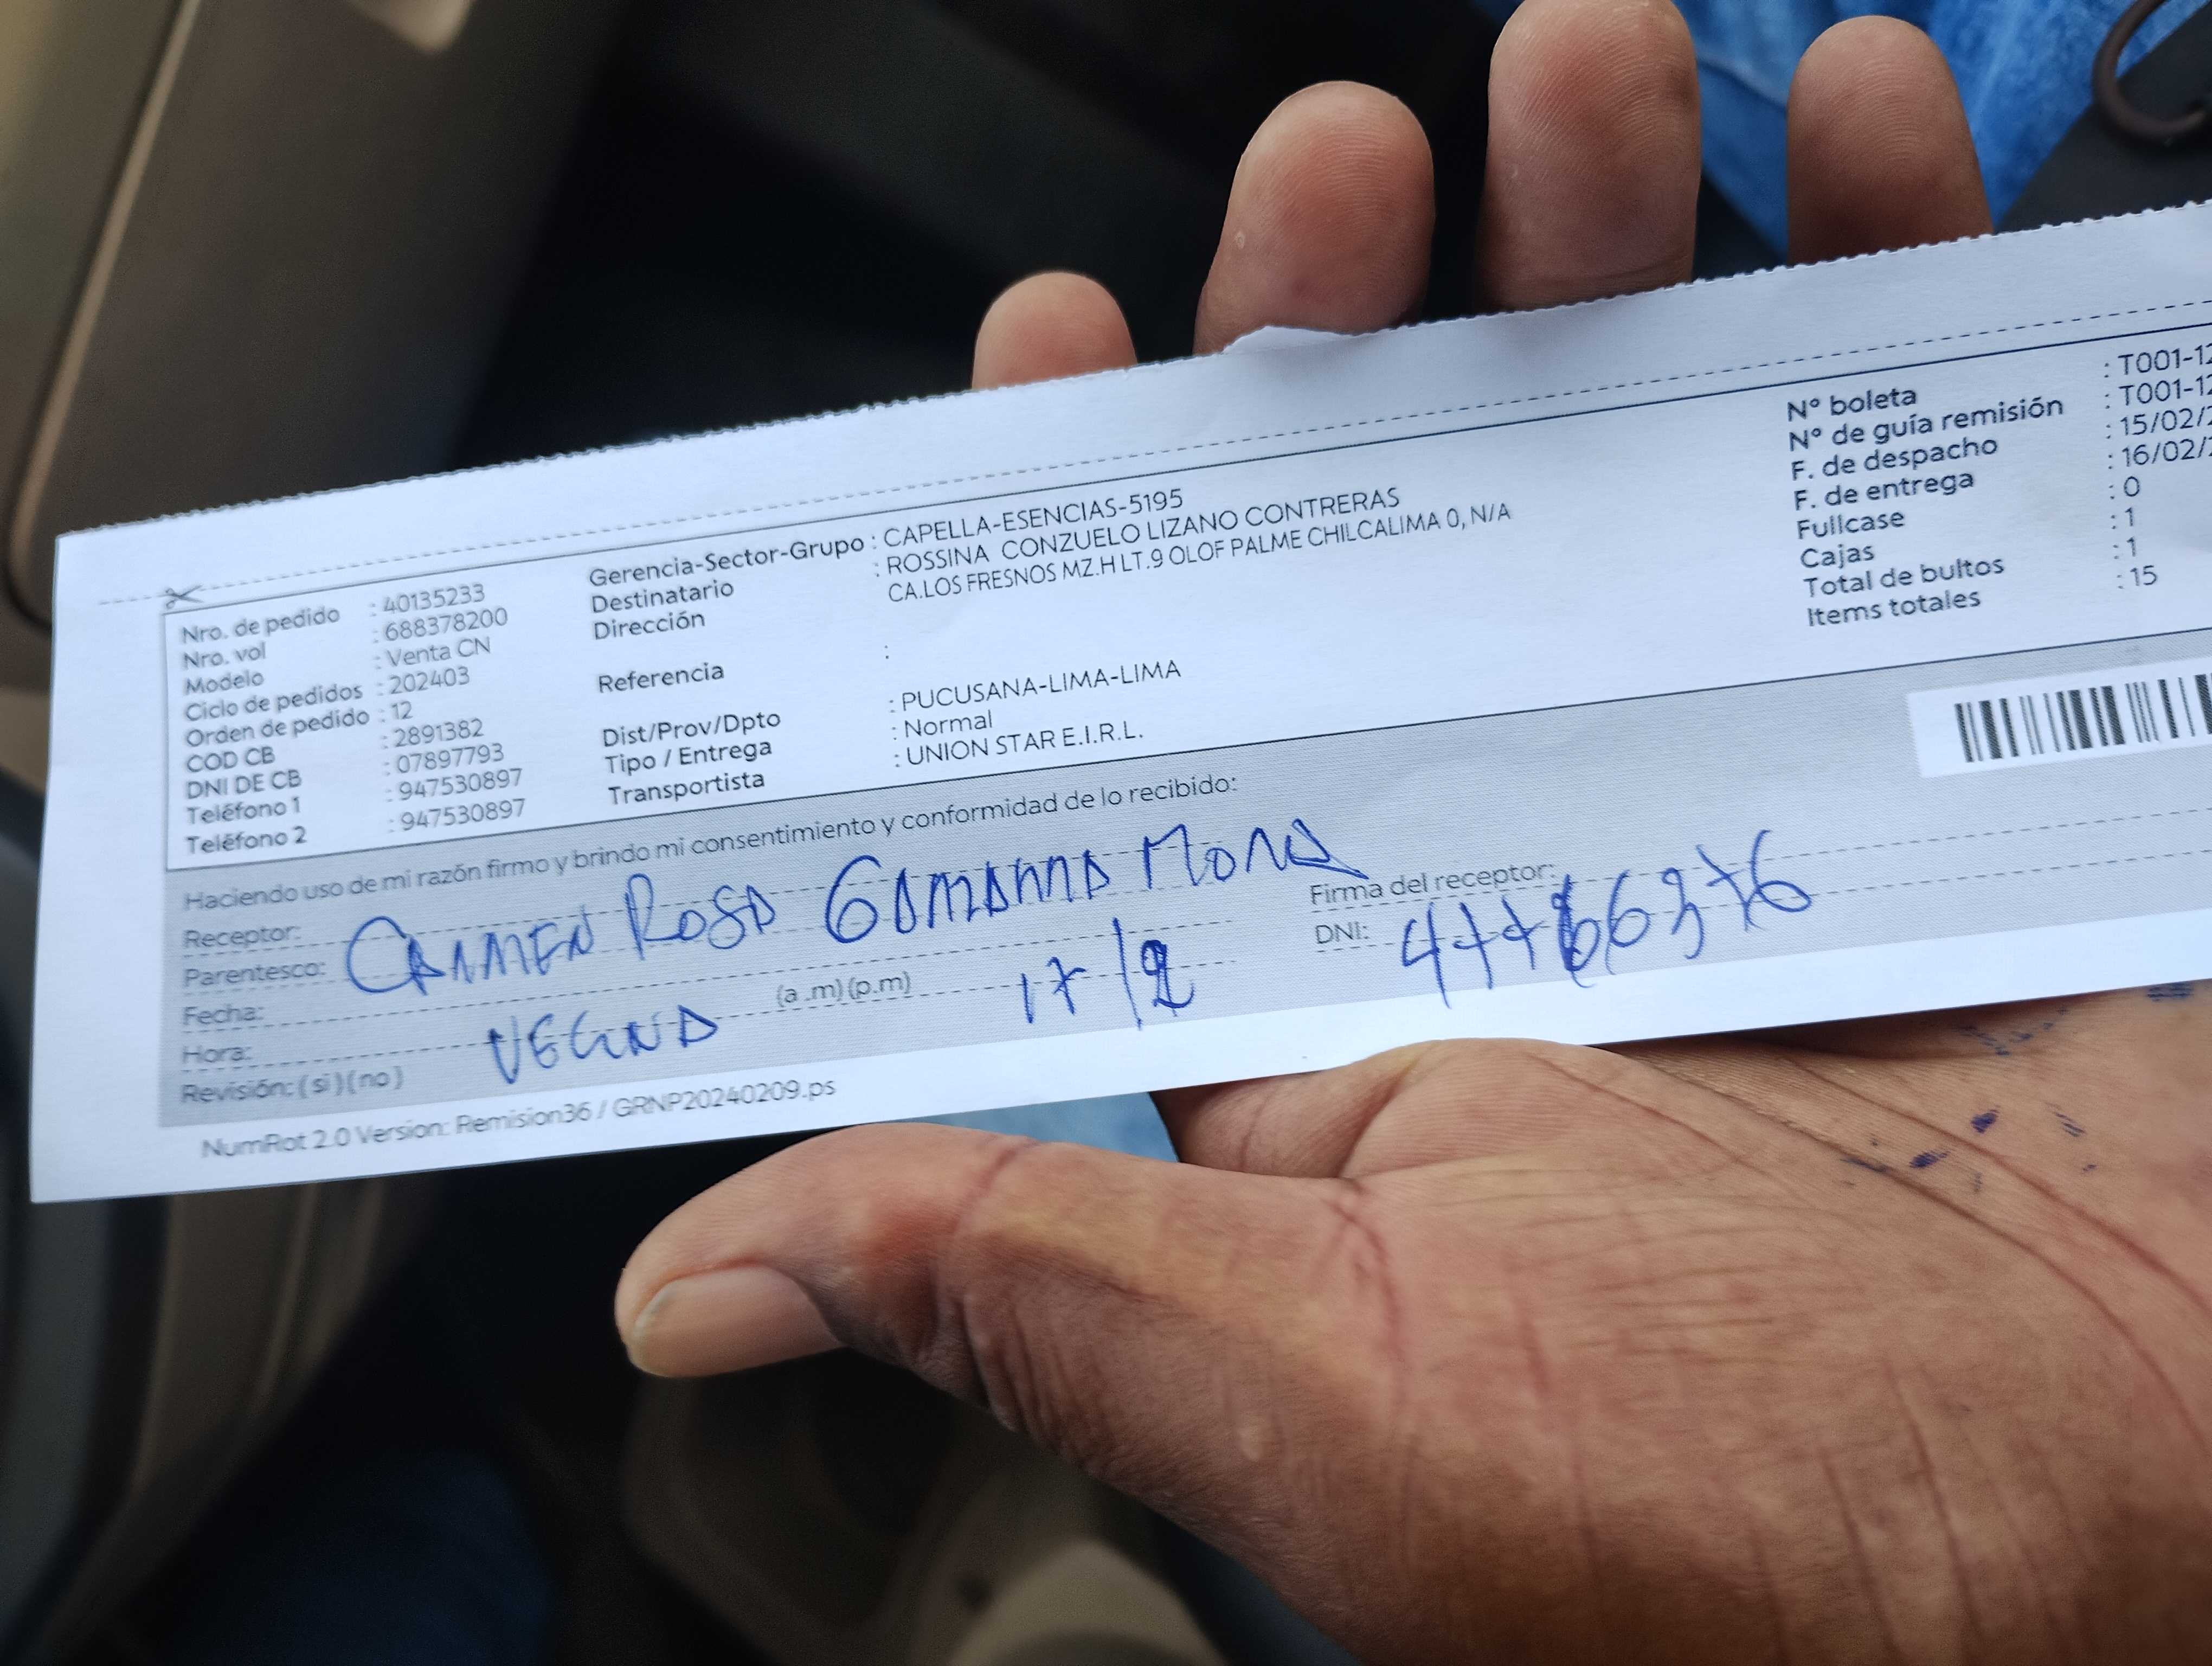 Nro. de pedido : 40135233
Nro. vol : 688378200
Modelo : Venta CN
Ciclo de pedidos : 202403
Orden de pedido : 12
COD CB : 2891382
DNI DE CB : 07897793
Teléfono 1 : 947530897
Teléfono 2 : 947530897
Gerencia-Sector-Grupo : CAPELLA-ESENCIAS-5195
Destinatario : ROSSINA CONZUELO LIZANO CONTRERAS
Dirección CA.LOS FRESNOS MZ.H LT.9 OLOF PALME CHILCALIMA 0, N/A
Referencia :
Dist/Prov/Dpto : PUCUSANA-LIMA-LIMA
Tipo / Entrega : Normal
Transportista : UNION STAR E.I.R.L.
N° boleta : T001-12
N° de guía remisión : T001-12
F. de despacho : 15/02/2
F. de entrega : 16/02/
Fullcase : 0
Cajas : 1
Total de bultos : 1
Items totales : 15
Haciendo uso de mi razón firmo y brindo mi consentimiento y conformidad de lo recibido:
Receptor:
Parentesco: CARMEN ROSA
Fecha:
Hora: (a .m) (p.m) 17/2
Revisión: ( si ) ( no ) VECINA
Firma del receptor:
DNI:
NumRot 2.0 Version: Remision36 / GRNP20240209.ps